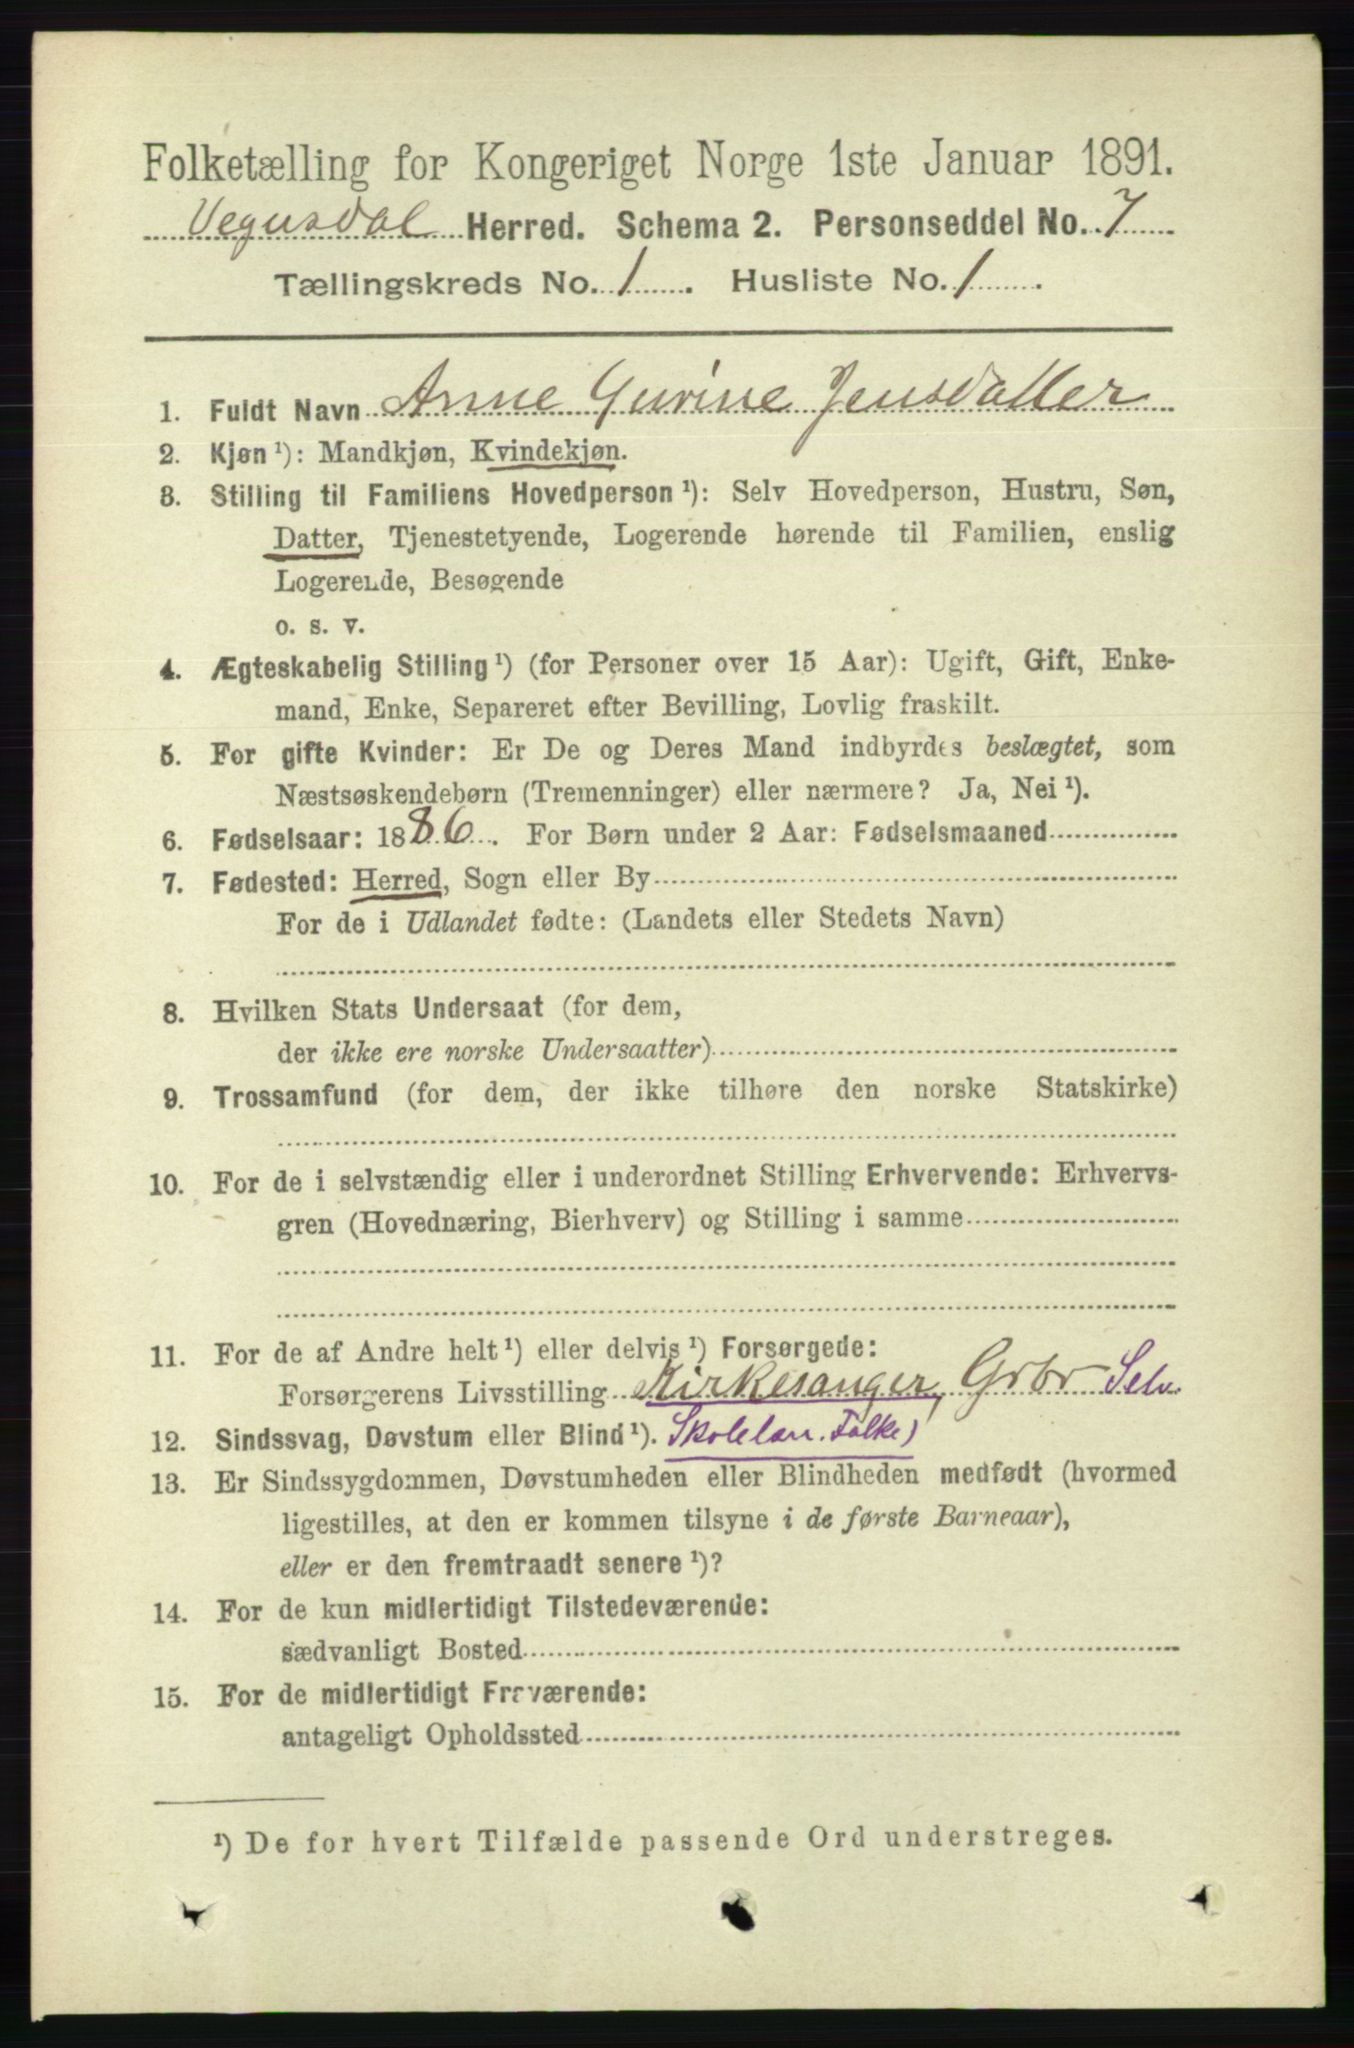 Folketælling for Kongeriget Norge 1ste Januar 1891.
Vegusdal Herred. Schema 2. Personseddel No. 7
Tællingskreds No. 1. Husliste No. 1.
1. Fuldt Navn Anne Gurine Jensdatter
2. Kjøn ¹): Mandkjøn, Kvindekjøn.
3. Stilling til Familiens Hovedperson ¹): Selv Hovedperson, Hustru, Søn,
Datter, Tjenestetyende, Logerende hørende til Familien, enslig
Logerende, Besøgende
o. s. v.
4. Ægteskabelig Stilling ¹) (for Personer over 15 Aar): Ugift, Gift, Enke-
mand, Enke, Separeret efter Bevilling, Lovlig fraskilt.
5. For gifte Kvinder: Er De og Deres Mand indbyrdes beslægtet, som
Næstsøskendebørn (Tremenninger) eller nærmere? Ja, Nei ¹).
6. Fødselsaar: 1886. For Børn under 2 Aar: Fødselsmaaned
7. Fødested: Herred, Sogn eller By
For de i Udlandet fødte: (Landets eller Stedets Navn)
8. Hvilken Stats Undersaat (for dem,
der ikke ere norske Undersaatter)
9. Trossamfund (for dem, der ikke tilhøre den norske Statskirke)
10. For de i selvstændig eller i underordnet Stilling Erhvervende: Erhvervs-
gren (Hovednæring, Bierhverv) og Stilling i samme
11. For de af Andre helt ¹) eller delvis ¹) Forsørgede:
Forsørgerens Livsstilling Kirkesanger, Grbr Selv.
12. Sindssvag, Døvstum eller Blind ¹). Skolelær. Folke)
13. Er Sindssygdommen, Døvstumheden eller Blindheden medfødt (hvormed
ligestilles, at den er kommen tilsyne i de første Barneaar),
eller er den fremtraadt senere ¹)?
14. For de kun midlertidigt Tilstedeværende:
sædvanligt Bosted
15. For de midlertidigt Fraværende:
antageligt Opholdssted
¹) De for hvert Tilfælde passende Ord understreges.